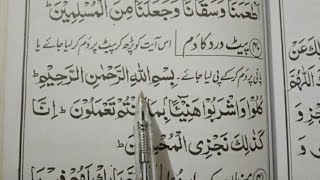 طْعَمَنَا وَسَقَانَا وَجَعَلَنَا مِنَ الْمُسْلِمِيْنَ
پیٹ درد کا دَم اس آیت کو پڑھ کر پیٹ پر دَم کر لیا جائے یا
پانی پر دَم کر کے پی لیا جائے۔ بِسْمِ اللهِ الرَّحْمٰنِ الرَّحِيْمِ
كُلُوْا وَاشْرَبُوْا هَنِيْٓـًٔا بِمَا كُنْتُمْ تَعْمَلُوْنَ اِنَّا
كَذٰلِكَ نَجْزِى